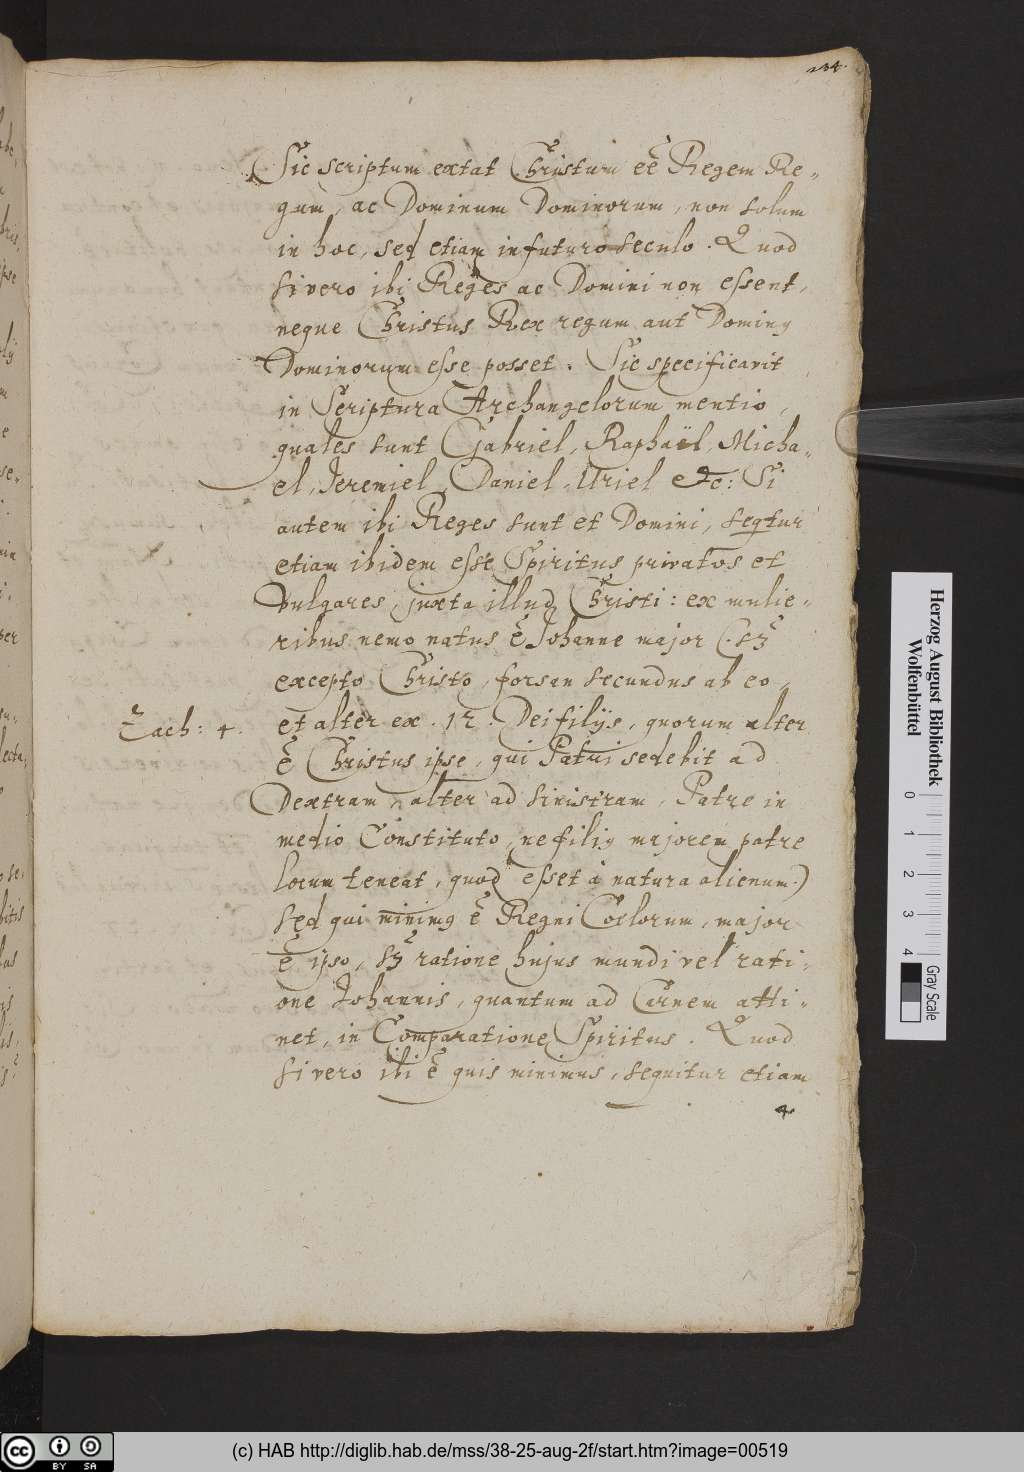 234.
Sic scriptum extat Christum eē Regem Re-
gum, ac Dominum Dominorum, non solum
in hoc, sed etiam in futuro seculo. Quod
si vero ibi Reges ac Domini non essent,
neque Christus Rex regum aut Dominꝰ
Dominorum esse posset. Sic specificavit
in Scriptura Archangelorum mentio,
quales sunt Gabriel, Raphaël, Micha-
el, Jeremiel, Daniel, Uriel etc: Si
autem ibi Reges sunt et Domini, seqtur
etiam ibidem esse Spiritus privatos et
vulgares, juxta illud Christi: ex mulie-
ribus nemo natus ē Johanne major (sꝫ
excepto Christo, forsan secundus ab eo,
Zach: 4.
et alter ex. 12. Dei filijs, quorum alter
ē Christus ipse, qui Patri sedebit ad
Dextram, alter ad sinistram, Patre in
medio Constituto, ne filiꝰ majorem patre
locum teneat, quod esset à natura alienum.)
Sed qui minimꝰ ē Regni Coelorum, major
ē ipso, sꝫ ratione hujus mundi vel rati-
one Johannis, quantum ad Carnem atti-
net, in Comparatione Spiritus. Quod
si vero ibi ē quis minimus, sequitur etiam
Herzog August Bibliothek
Wolfenbüttel
0 1 2 3 4
Gray Scale
cc BY SA
(c) HAB http://diglib.hab.de/mss/38-25-aug-2f/start.htm?image=00519